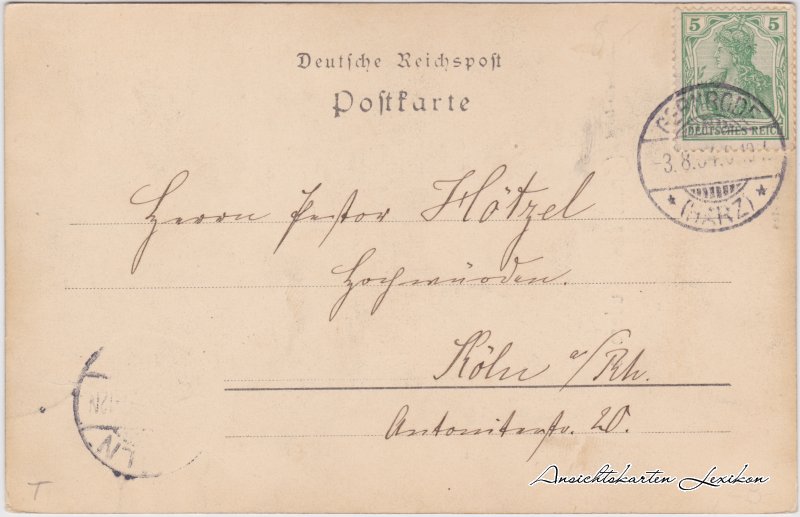 5 5
DEUTSCHES REICH
Deutsche Reichspost
Postkarte
GERNRODE
3.8.04.
(HARZ)
Herrn Pastor Hötzel
Hochwürden.
Köln a/Rh.
Antoniterstr. 20.
LN
T
Ansichtskarten Lexikon